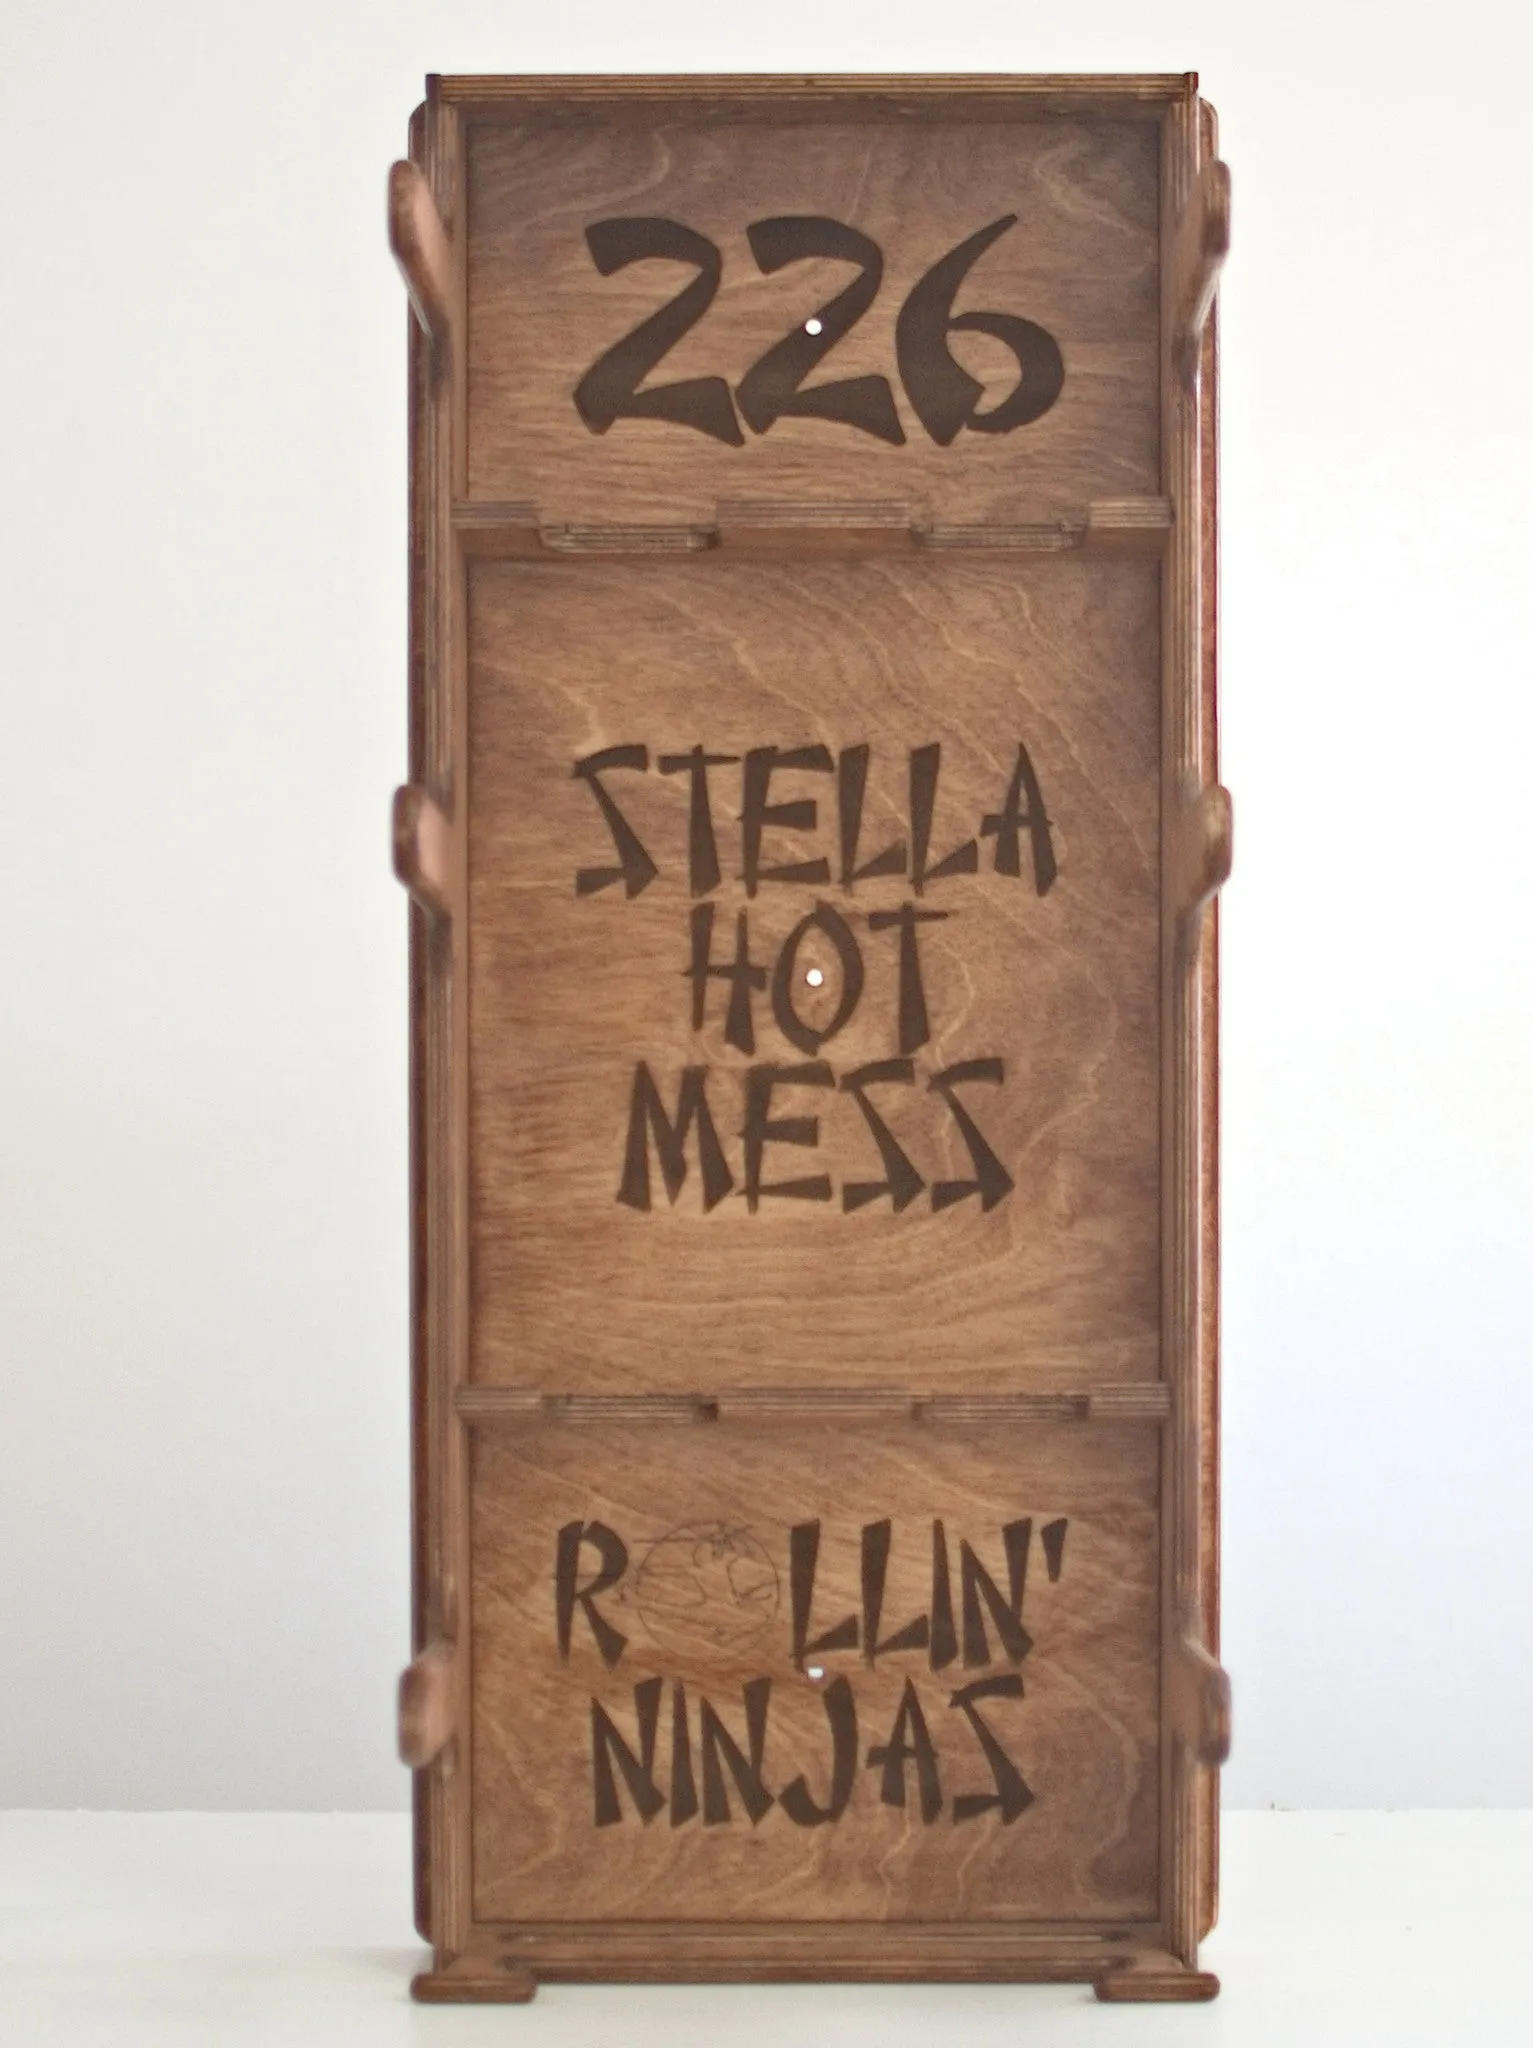 226
STELLA
HOT
MESS
ROLLIN'
NINJAS